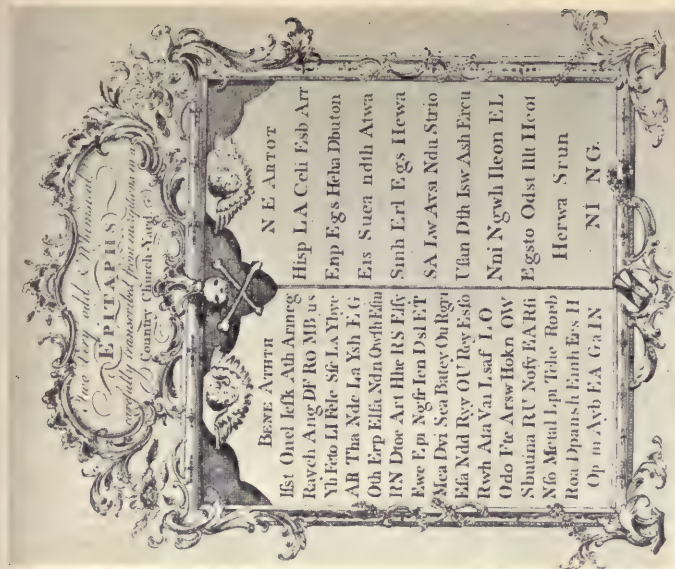 Two very odd & Whimsical
EPITAPHS
carefully transcribed from inscriptions in a
Country Church-Yard
BENE ATHTH
Ifst Onel Iefk Ath Arineg
Raych Ang DF RO MB us
Yli Feto LI Fele Sfe LA Ybye
AR Tha Ndc La Ysh E G
Oth Erp Elfa Ndn Owfh Efın
RN Dtoe Art Hhe RS Elfy
Ewe Epi Ngfr Ien Dsl ET
Mea Dvi Sea Batey Ou Rgri
Efa Ndd Ryy OU Rey Esfo
Rwh Ata Vai Lsaf LO
Odo Fte Arsw Hokn OW
Sbutina RU Nofy EA Rfi
Nfo Metal Lpi Tche Rorb
Roa Dpansh Einth Ers H
Op m Ayb EA Ga IN
N E ARTOT
Hisp LA Celi Esb Arr
Enp Egs Heha Dbuton
Ers Suea ndth Atwa
Sinh Erl Egs Hewa
SA Lw Avsa Ndu Strio
Ufan Dth Isw Ash Ercu
Nni Ngwh Ileon EL
Egsto Odst Illt Heot
Herwa Srun
NI NG.